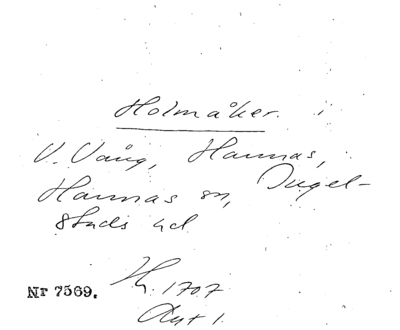 Holmåker. i
V. Vång, Hannas,
Hannas sn, Ingel-
stads hd
Nr 7569.
H. 1707
Akt 1.